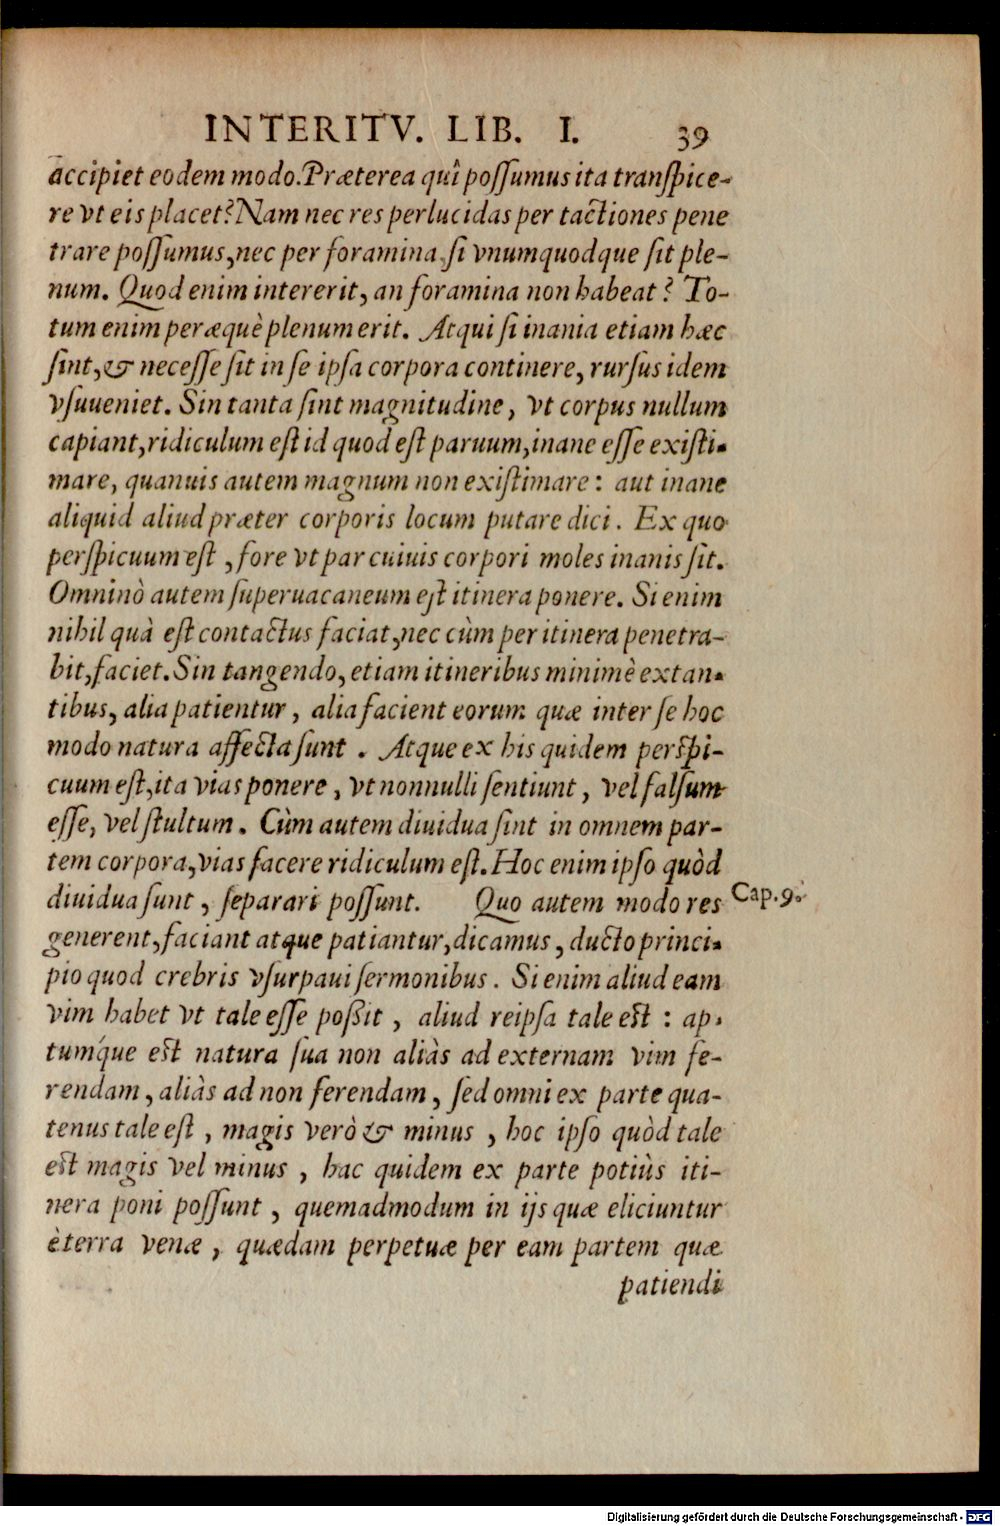 INTERITV. LIB. I. 39
accipiet eodem modo. Præterea quî possumus ita transpice-
re vt eis placet? Nam nec res perlucidas per tactiones pene
trare possumus, nec per foramina, si vnumquodque sit ple-
num. Quod enim intererit, an foramina non habeat? To-
tum enim peræquè plenum erit. Atqui si inania etiam hæc
sint, & necesse sit in se ipsa corpora continere, rursus idem
vsuueniet. Sin tanta sint magnitudine, vt corpus nullum
capiant, ridiculum est id quod est paruum, inane esse existi-
mare, quanuis autem magnum non existimare: aut inane
aliquid aliud præter corporis locum putare dici. Ex quo
perspicuum est, fore vt par cuiuis corpori moles inanis sit.
Omninò autem superuacaneum est itinera ponere. Si enim
nihil quà est contactus faciat, nec cùm per itinera penetra-
bit, faciet. Sin tangendo, etiam itineribus minimè extan-
tibus, alia patientur, alia facient eorum quæ inter se hoc
modo natura affecta sunt. Atque ex his quidem perspi-
cuum est, ita vias ponere, vt nonnulli sentiunt, vel falsum
esse, vel stultum. Cùm autem diuidua sint in omnem par-
tem corpora, vias facere ridiculum est. Hoc enim ipso quòd
diuidua sunt, separari possunt. Quo autem modo res Cap. 9.
generent, faciant atque patiantur, dicamus, ducto princi-
pio quod crebris vsurpaui sermonibus. Si enim aliud eam
vim habet vt tale esse possit, aliud reipsa tale est: ap-
tumq́ue est natura sua non aliàs ad externam vim fe-
rendam, aliàs ad non ferendam, sed omni ex parte qua-
tenus tale est, magis verò & minus, hoc ipso quòd tale
est magis vel minus, hac quidem ex parte potiùs iti-
nera poni possunt, quemadmodum in ijs quæ eliciuntur
è terra venæ, quædam perpetuæ per eam partem quæ
patiendi
Digitalisierung gefördert durch die Deutsche Forschungsgemeinschaft - DFG